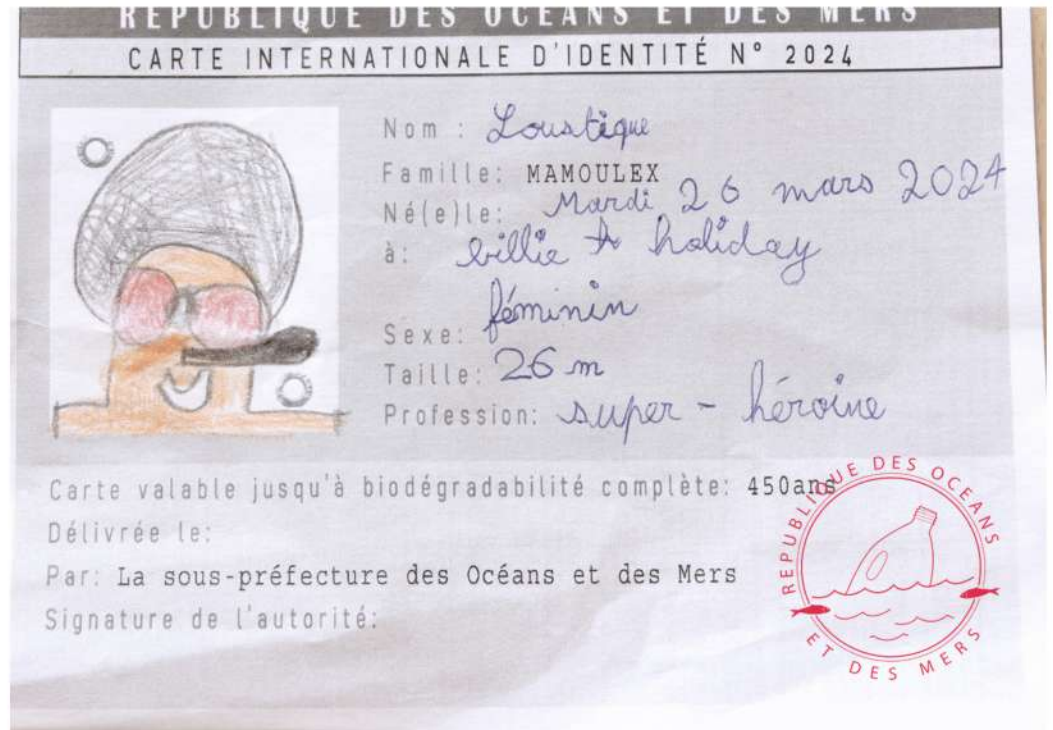 REPUBLIQUE DES OCEANS ET DES MERS
CARTE INTERNATIONALE D'IDENTITÉ N° 2024
Nom : Loustique
Famille: MAMOULEX
Né(e)le: Mardi 26 mars 2024
à: billie holiday
Sexe: féminin
Taille: 26 m
Profession: super - héroïne
Carte valable jusqu'à biodégradabilité complète: 450ans
Délivrée le:
Par: La sous-préfecture des Océans et des Mers
Signature de l'autorité:
REPUBLIQUE DES OCEANS
ET DES MERS